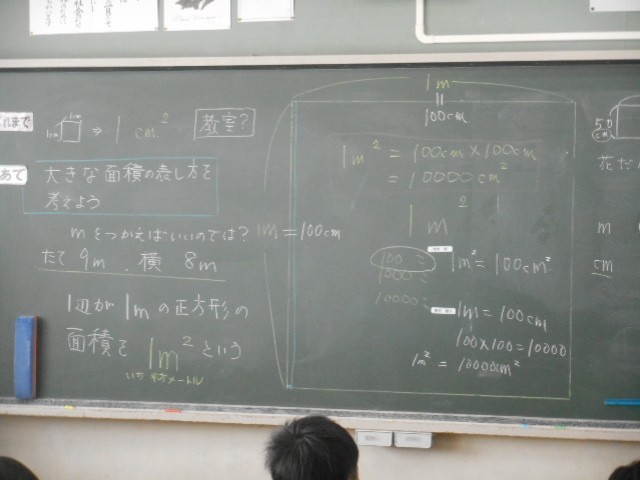 れまで
⇒ 1 cm²
教室?
あて
大きな面積の表し方を
考えよう
mをつかえばいいのでは?
たて 9m、横 8m
1辺が 1m の正方形の
面積を 1m² という
1m
100cm
1m = 100cm
1m² = 100cm×100cm
= 10000cm²
1m²
100こ
1000こ
10000こ
1m² = 100cm²
1m = 100cm
100×100=10000
1m² = 10000cm²
50
cm
花だ
m
cm